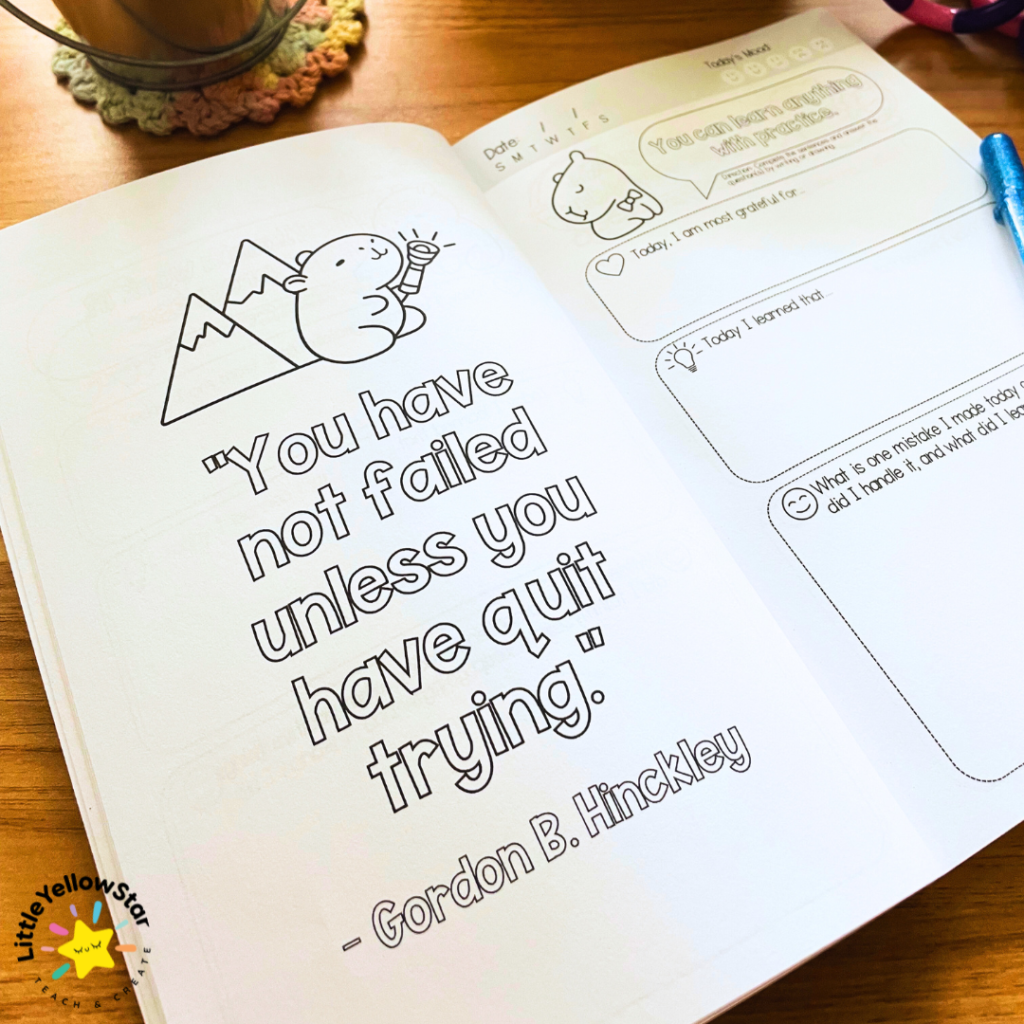 "You have
not failed
unless you
have quit
trying."
- Gordon B. Hinckley
Date: / /
S M T W T F S
Today's Mood
You can learn anything
with practice.
Direction: Complete the sentences and answer the
question(s) by writing or drawing.
Today, I am most grateful for...
Today I learned that...
What is one mistake I made today
did I handle it, and what did I
LittleYellowStar
TEACH & CREATE